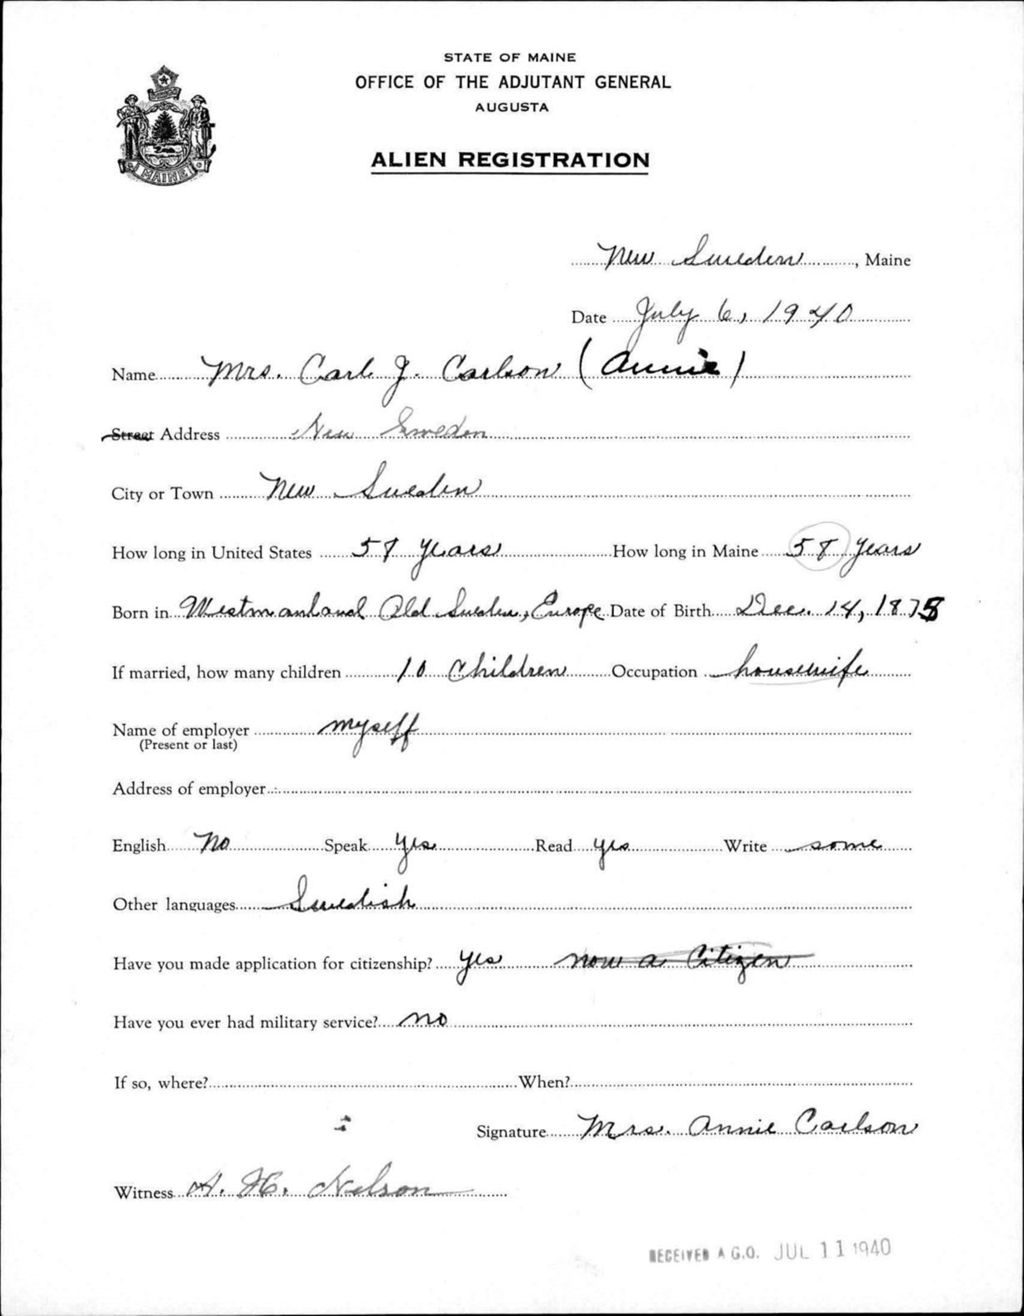 STATE OF MAINE
OFFICE OF THE ADJUTANT GENERAL
AUGUSTA
ALIEN REGISTRATION
MAINE
New Sweden, Maine
Date July 6, 1940
Name Mrs. Carl J. Carlson (Annie)
Street Address New Sweden
City or Town New Sweden
How long in United States 58 years How long in Maine 58 years
Born in Westmanland Old Sweden, Europe Date of Birth Dec. 14, 1873
If married, how many children 10 Children Occupation housewife
Name of employer myself
(Present or last)
Address of employer
English No Speak yes Read yes Write some
Other languages Swedish
Have you made application for citizenship? yes now a Citizen
Have you ever had military service? no
If so, where? When?
Signature Mrs. Annie Carlson
Witness A. H. Nelson
RECEIVED A.G.O. JUL 11 1940